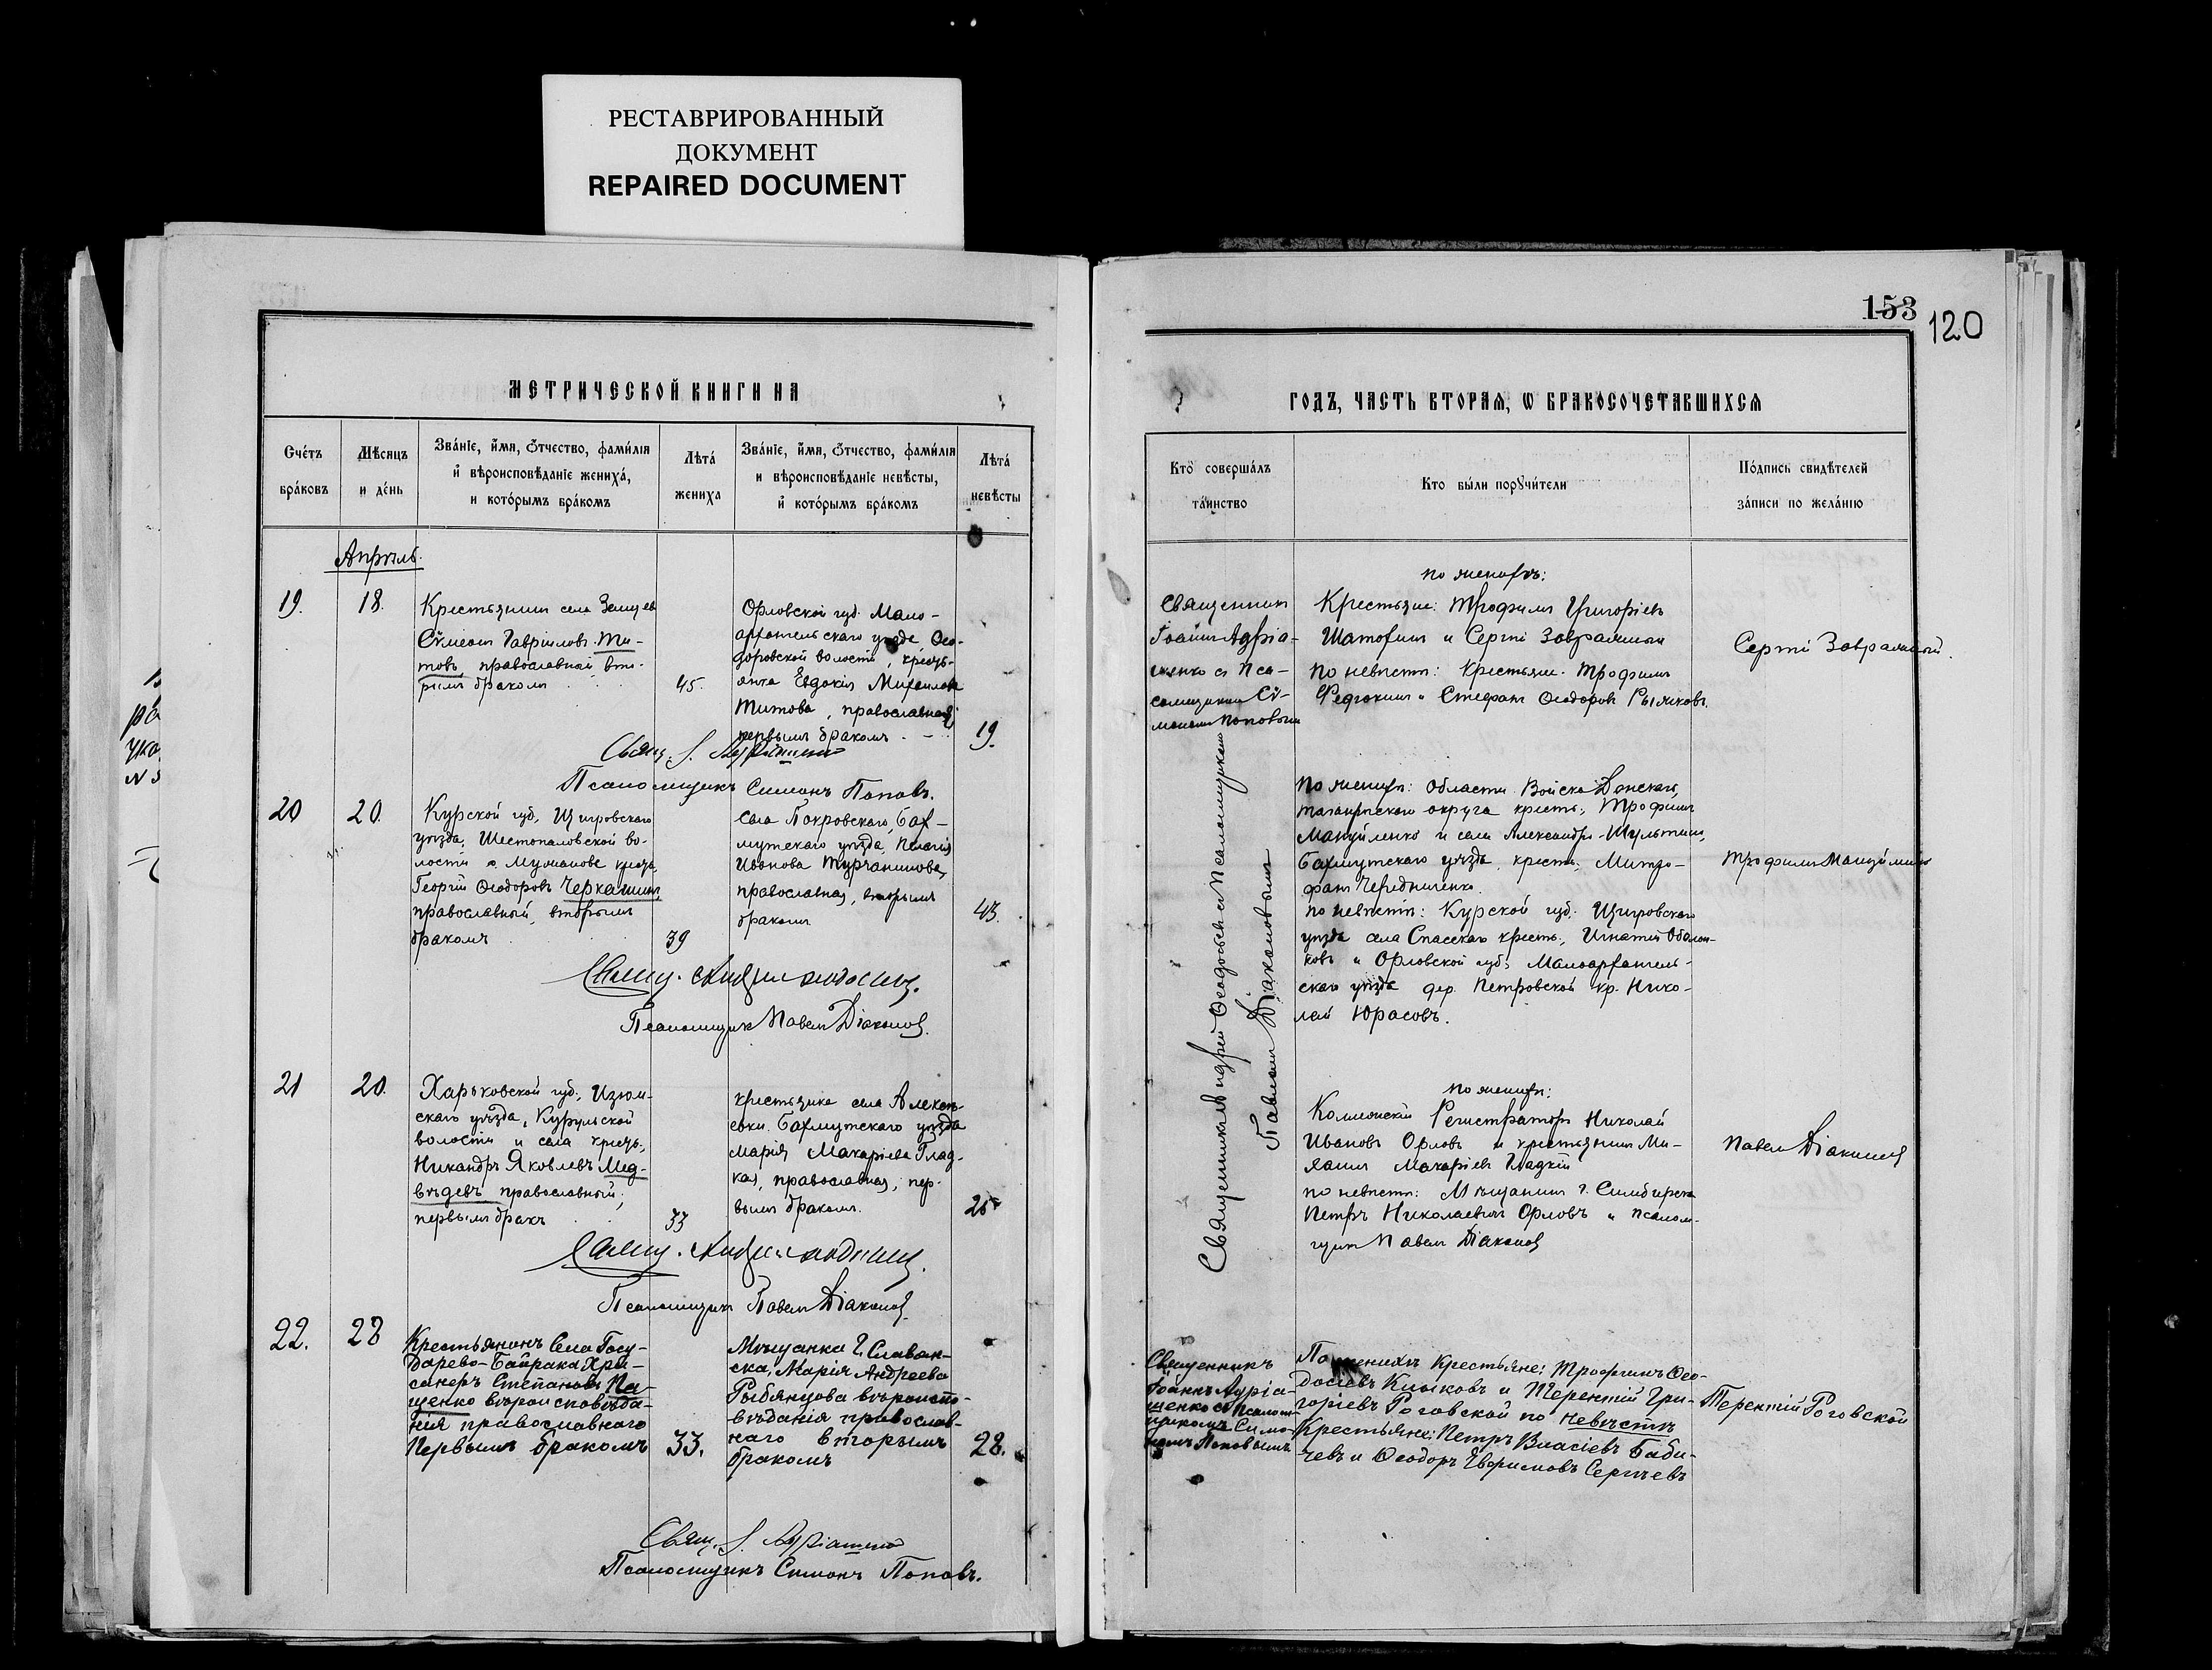 РЕСТАВРИРОВАННЫЙ
ДОКУМЕНТ
REPAIRED DOCUMENT
153
120
МЕТРИЧЕСКОЙ КНИГИ НА
Счетъ браковъ
Мѣсяцъ и день
Званіе, имя, отчество, фамилія
и вѣроисповѣданіе жениха,
и которымъ бракомъ
Лѣта жениха
Званіе, имя, отчество, фамилія
и вѣроисповѣданіе невѣсты,
и которымъ бракомъ
Лѣта невѣсты
Апрѣль.
19.
18.
Крестьянинъ села
Сѵмеонъ Гавріиловъ Ти-
товъ, православный, вто-
рымъ бракомъ
45.
Орловской губ. Мало-
архангельскаго уѣзда, Ѳео-
доровской волости, кресть-
янка Евдокія Михайлова
Титова, православная,
первымъ бракомъ.
19.
Свящ. І. Адріащенко
Псаломщикъ Симонъ Поповъ.
20
20.
Курской губ., Щигровскаго
уѣзда, во-
лости
Георгій Ѳеодоровъ Черкашинъ,
православный, вторымъ
бракомъ
39
Села Покровскаго, Бах-
мутскаго уѣзда, Пелагія
Иванова Турчанинова,
православная, вторымъ
бракомъ
43.
Свящ.
Псаломщикъ Павелъ Діаконовъ.
21
20.
Харьковской губ., Изюм-
скаго уѣзда, Курульской
волости и села кресть.
Никандръ Яковлевъ Мед-
вѣдевъ православный,
первымъ бракъ
33
крестьянка села Алексѣ-
евки Бахмутскаго уѣзда
Марія Макаріева Глад-
кая, православная, пер-
вымъ бракомъ.
25
Свящ.
Псаломщикъ Павелъ Діаконовъ.
22.
28
Крестьянинъ Села Госу-
дарево-Байрака Хри-
санѳъ Степановъ Па-
щенко вѣроисповѣда-
нія православнаго
Первымъ бракомъ
33.
Мѣщанка г. Славян-
ска, Марія Андреева
Рыбянцова вѣроиспо-
вѣданія православ-
наго вторымъ
бракомъ
28.
Свящ. І. Адріащенко
Псаломщикъ Симонъ Поповъ.
ГОДЪ, ЧАСТЬ ВТОРАЯ, Ѡ БРАКОСОЧЕТАВШИХСЯ
Кто совершалъ таинство
Кто были поручители
Подпись свидѣтелей
записи по желанію
Священникъ
Іоаннъ Адріа-
щенко съ Пса-
ломщикомъ Сѵ-
мономъ Поповымъ
по женихѣ:
Крестьяне: Трофимъ Григоріевъ
и Сергій Завражный
по невѣстѣ: Крестьяне. Трофимъ
и Стефанъ Ѳеодоровъ Рыжковъ.
Сергій Завражный.
Священникъ Андрей Ѳеодосьевъ съ Псаломщикомъ
Павломъ Діаконовымъ
По женихѣ: Области Войска Донскаго,
Таганрогскаго округа крест., Трофимъ
Мануйленко и села Александро-Шультина,
Бахмутскаго уѣзда, крест. Митро-
фанъ Чередниченко.
по невѣстѣ: Курской губ. Щигровскаго
уѣзда села Спасскаго крест., Игнатій
и Орловской губ. Малоархангель-
скаго уѣзда дер. Петровской кр. Нико-
лай Юрасовъ.
Трофимъ Мануйленко
по женихѣ:
Коллежскій Регистраторъ Николай
Ивановъ Орловъ и крестьянинъ Ми-
хаилъ Макаріевъ Гладкій
по невѣстѣ: Мѣщанинъ г. Симбирска
Петръ Николаевичъ Орловъ и псалом-
щикъ Павелъ Діаконовъ
Павелъ Діаконовъ
Священникъ
Іоаннъ Адріа-
щенко съ Псалом-
щикомъ Симо-
номъ Поповымъ
По женихѣ Крестьяне: Трофимъ Ѳео-
досіевъ Клыковъ и Терентій Гри-
горіевъ Роговской по невѣстѣ
Крестьяне: Петръ Власіевъ Баби-
чевъ и Ѳеодоръ Сергѣевъ
Терентій Роговской